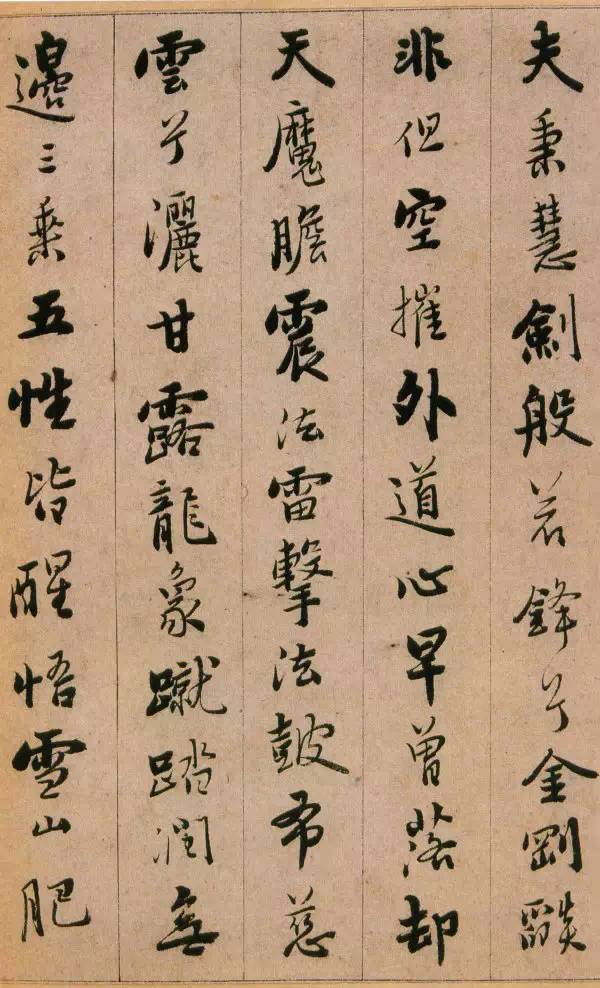 夫秉慧劍般若鋒兮金剛燄
非但空摧外道心早曾落却
天魔膽震法雷擊法皷布慈
雲兮灑甘露龍象蹴踏潤無
邊三乘五性皆醒悟雪山肥